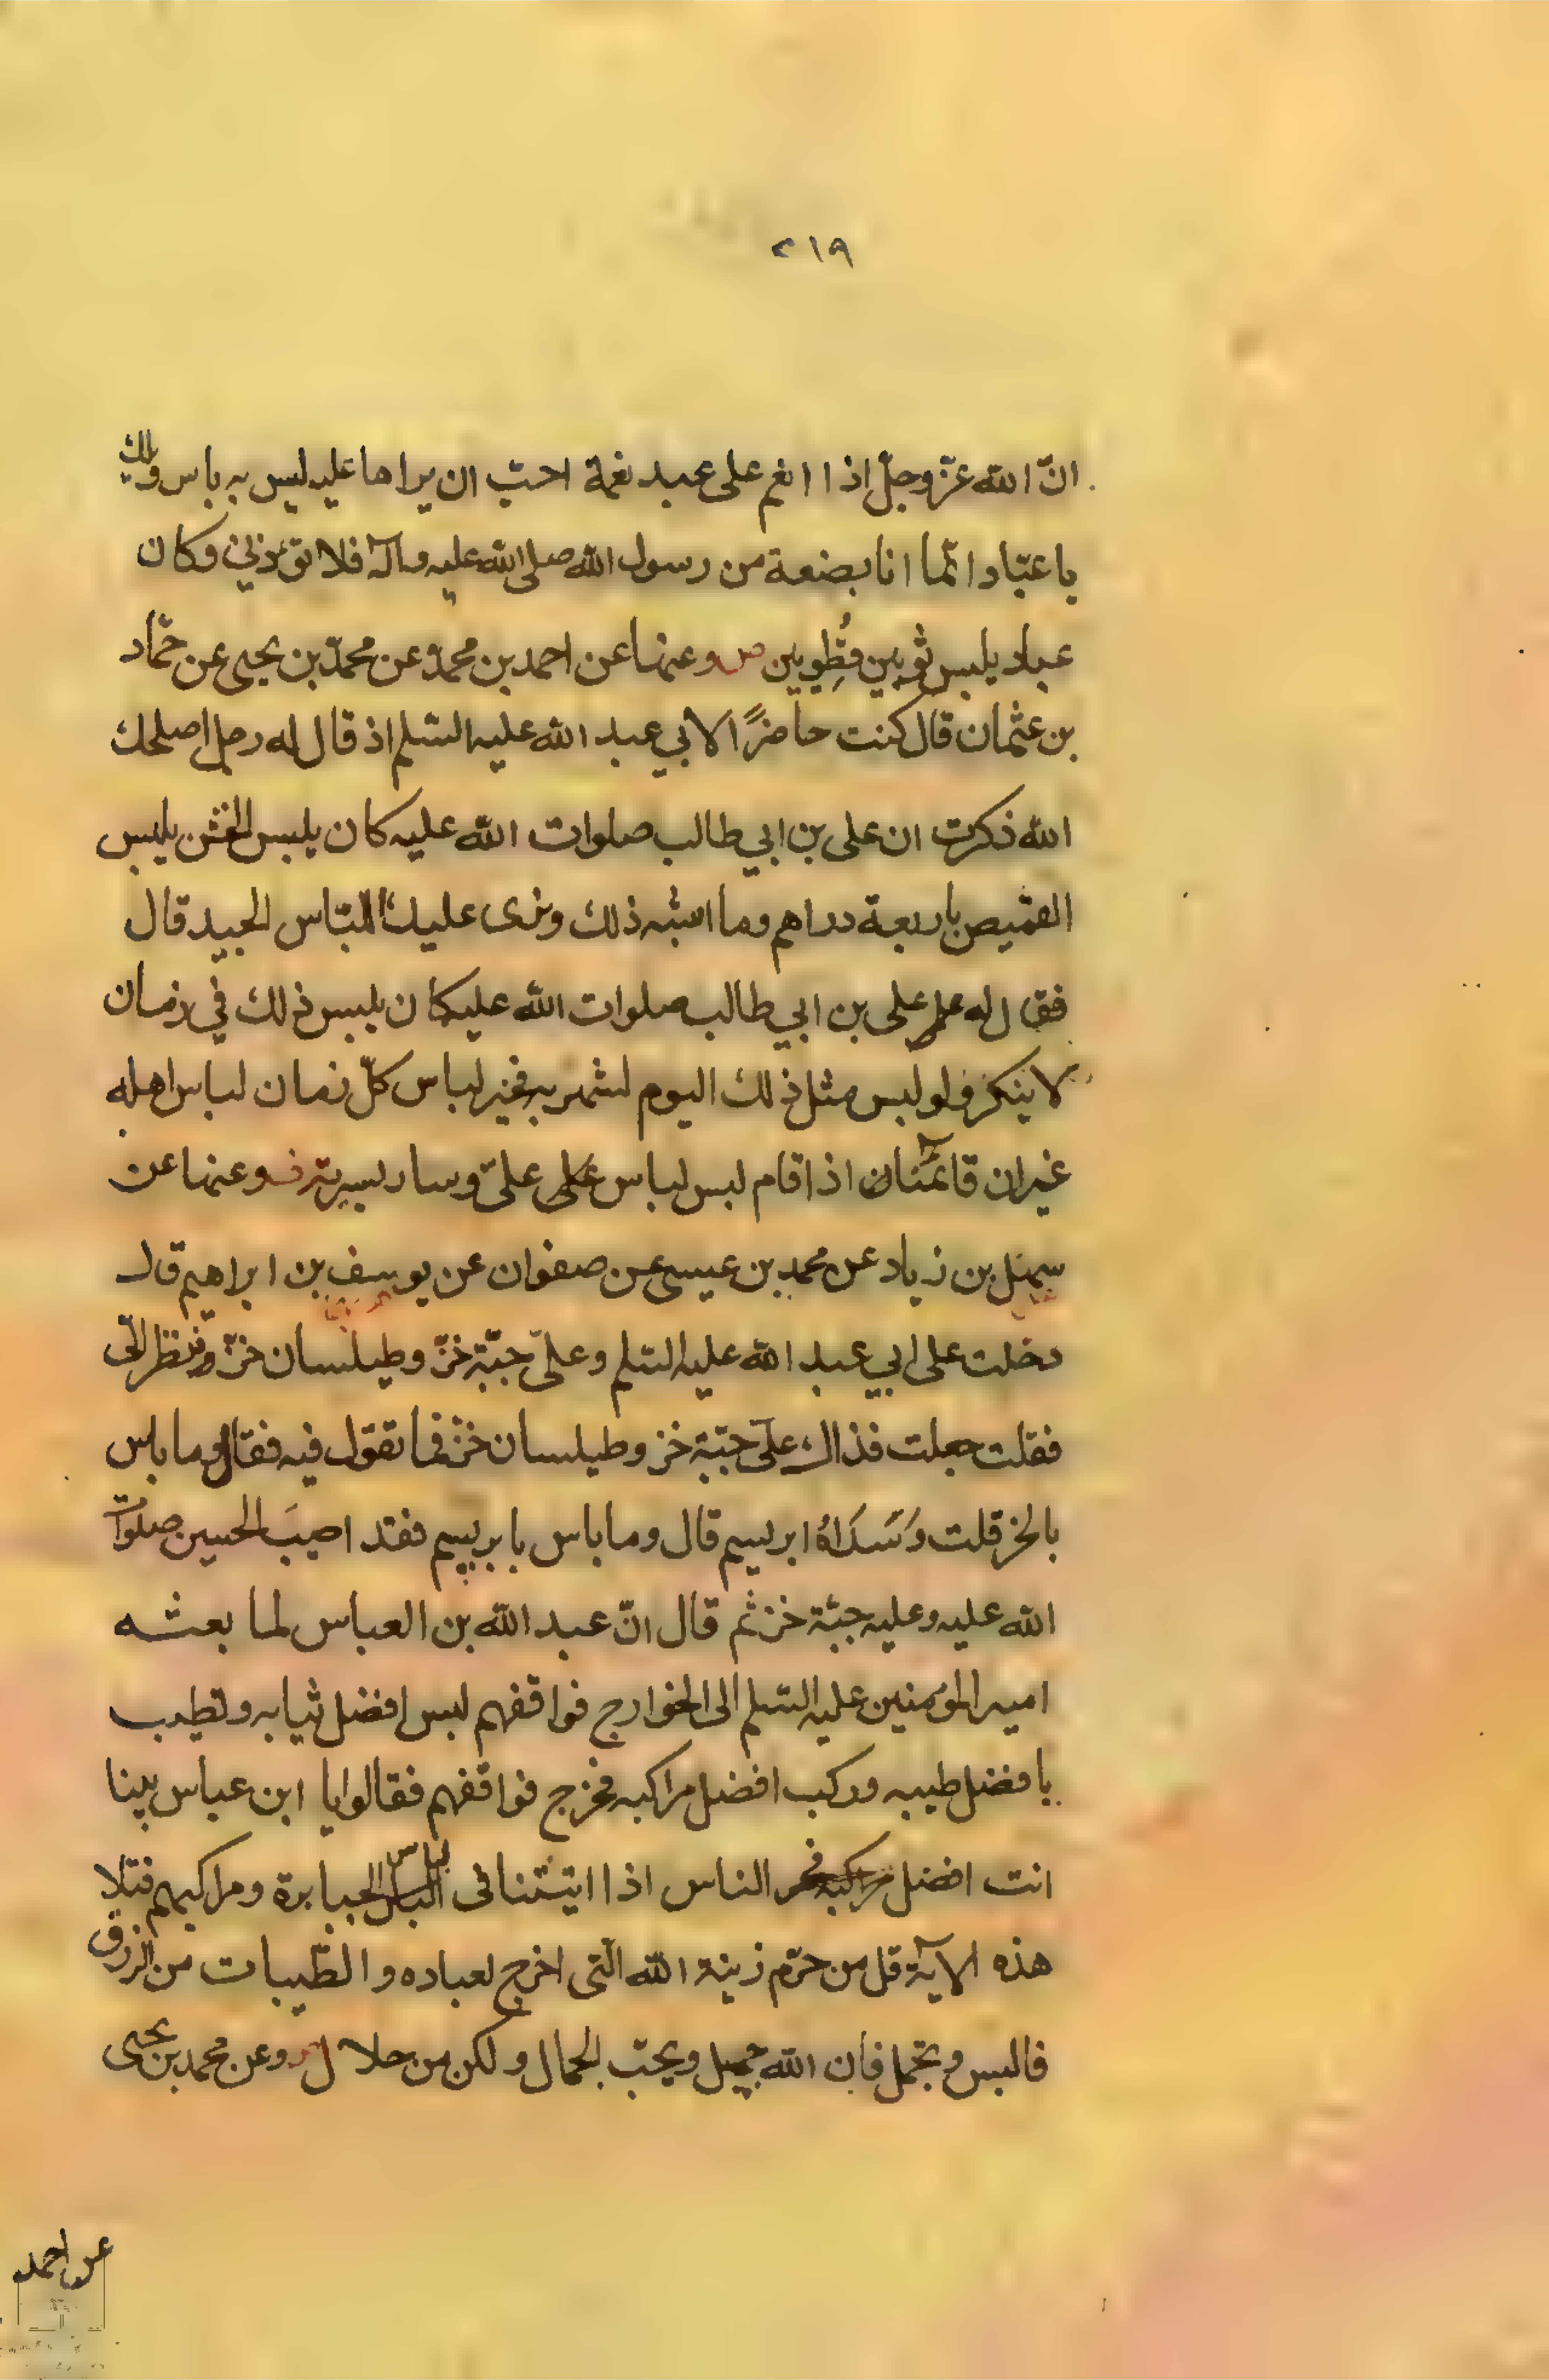 ٢١٩
انّ الله عزّ وجلّ اذا انعم على عبد نعمة احبّ ان يراها عليه ليس به باس ويلك
يا عبّاد انّما انا بضعة من رسول الله صلى الله عليه وآله فلا تؤذيني وكان
عباد يلبس ثوبين قُطِويين وعنها عن احمد بن محمد عن محمّد بن يحيى عن حمّاد
بن عثمان قال كنت حاضرًا لابي عبد الله عليه السّلم اذ قال له رجل اصلحك
الله ذكرت ان على بن ابي طالب صلوات الله عليه كان يلبس الخشن يلبس
القميص باربعة دراهم وما اشبه ذلك ونرى عليك اللّباس الجيد قال
فقال له على بن ابي طالب صلوات الله عليه كان يلبس ذلك في زمان
لا ينكر ولو لبس مثل ذلك اليوم لشهر به فخير لباس كلّ زمان لباس اهله
غير ان قائمنا اذا قام لبس لباس علىّ وسار بسيرته وعنها عن
سهل بن زياد عن محمد بن عيسى عن صفوان عن يوسف بن ابراهيم قال
دخلت على ابي عبد الله عليه السّلم وعلىّ جبّة خزّ وطيلسان خزّ فنظر الىّ
فقلت جعلت فذاك علىّ جبّة خز وطيلسان خزّ فما تقول فيه فقال وما باس
بالخز قلت وَسَدَاهُ ابريسم قال وما باس بابريسم فقد اصيبَ الحسين صلوات
الله عليه وعليه جبّة خز ثم قال انّ عبد الله بن العباس لما بعثه
امير المؤمنين عليه السّلم الى الخوارج فواقفهم لبس افضل ثيابه وتطيب
بافضل طيبه وركب افضل مراكبه فخرج فواقفهم فقالوا يا ابن عباس بينا
انت افضل الناس اذا اتيتنا فى لباس الجبابرة ومراكبهم فتلا
هذه الآية قل من حرّم زينة الله الّتى اخرج لعباده والطّيبات من الرزق
فالبس وتجمل فان الله جميل ويحبّ الجمال ولكن من حلال وعن محمد بن يحيى
عن احمد